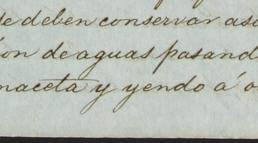 se deben conservar asi
on de aguas pasand
maceta y yendo á o